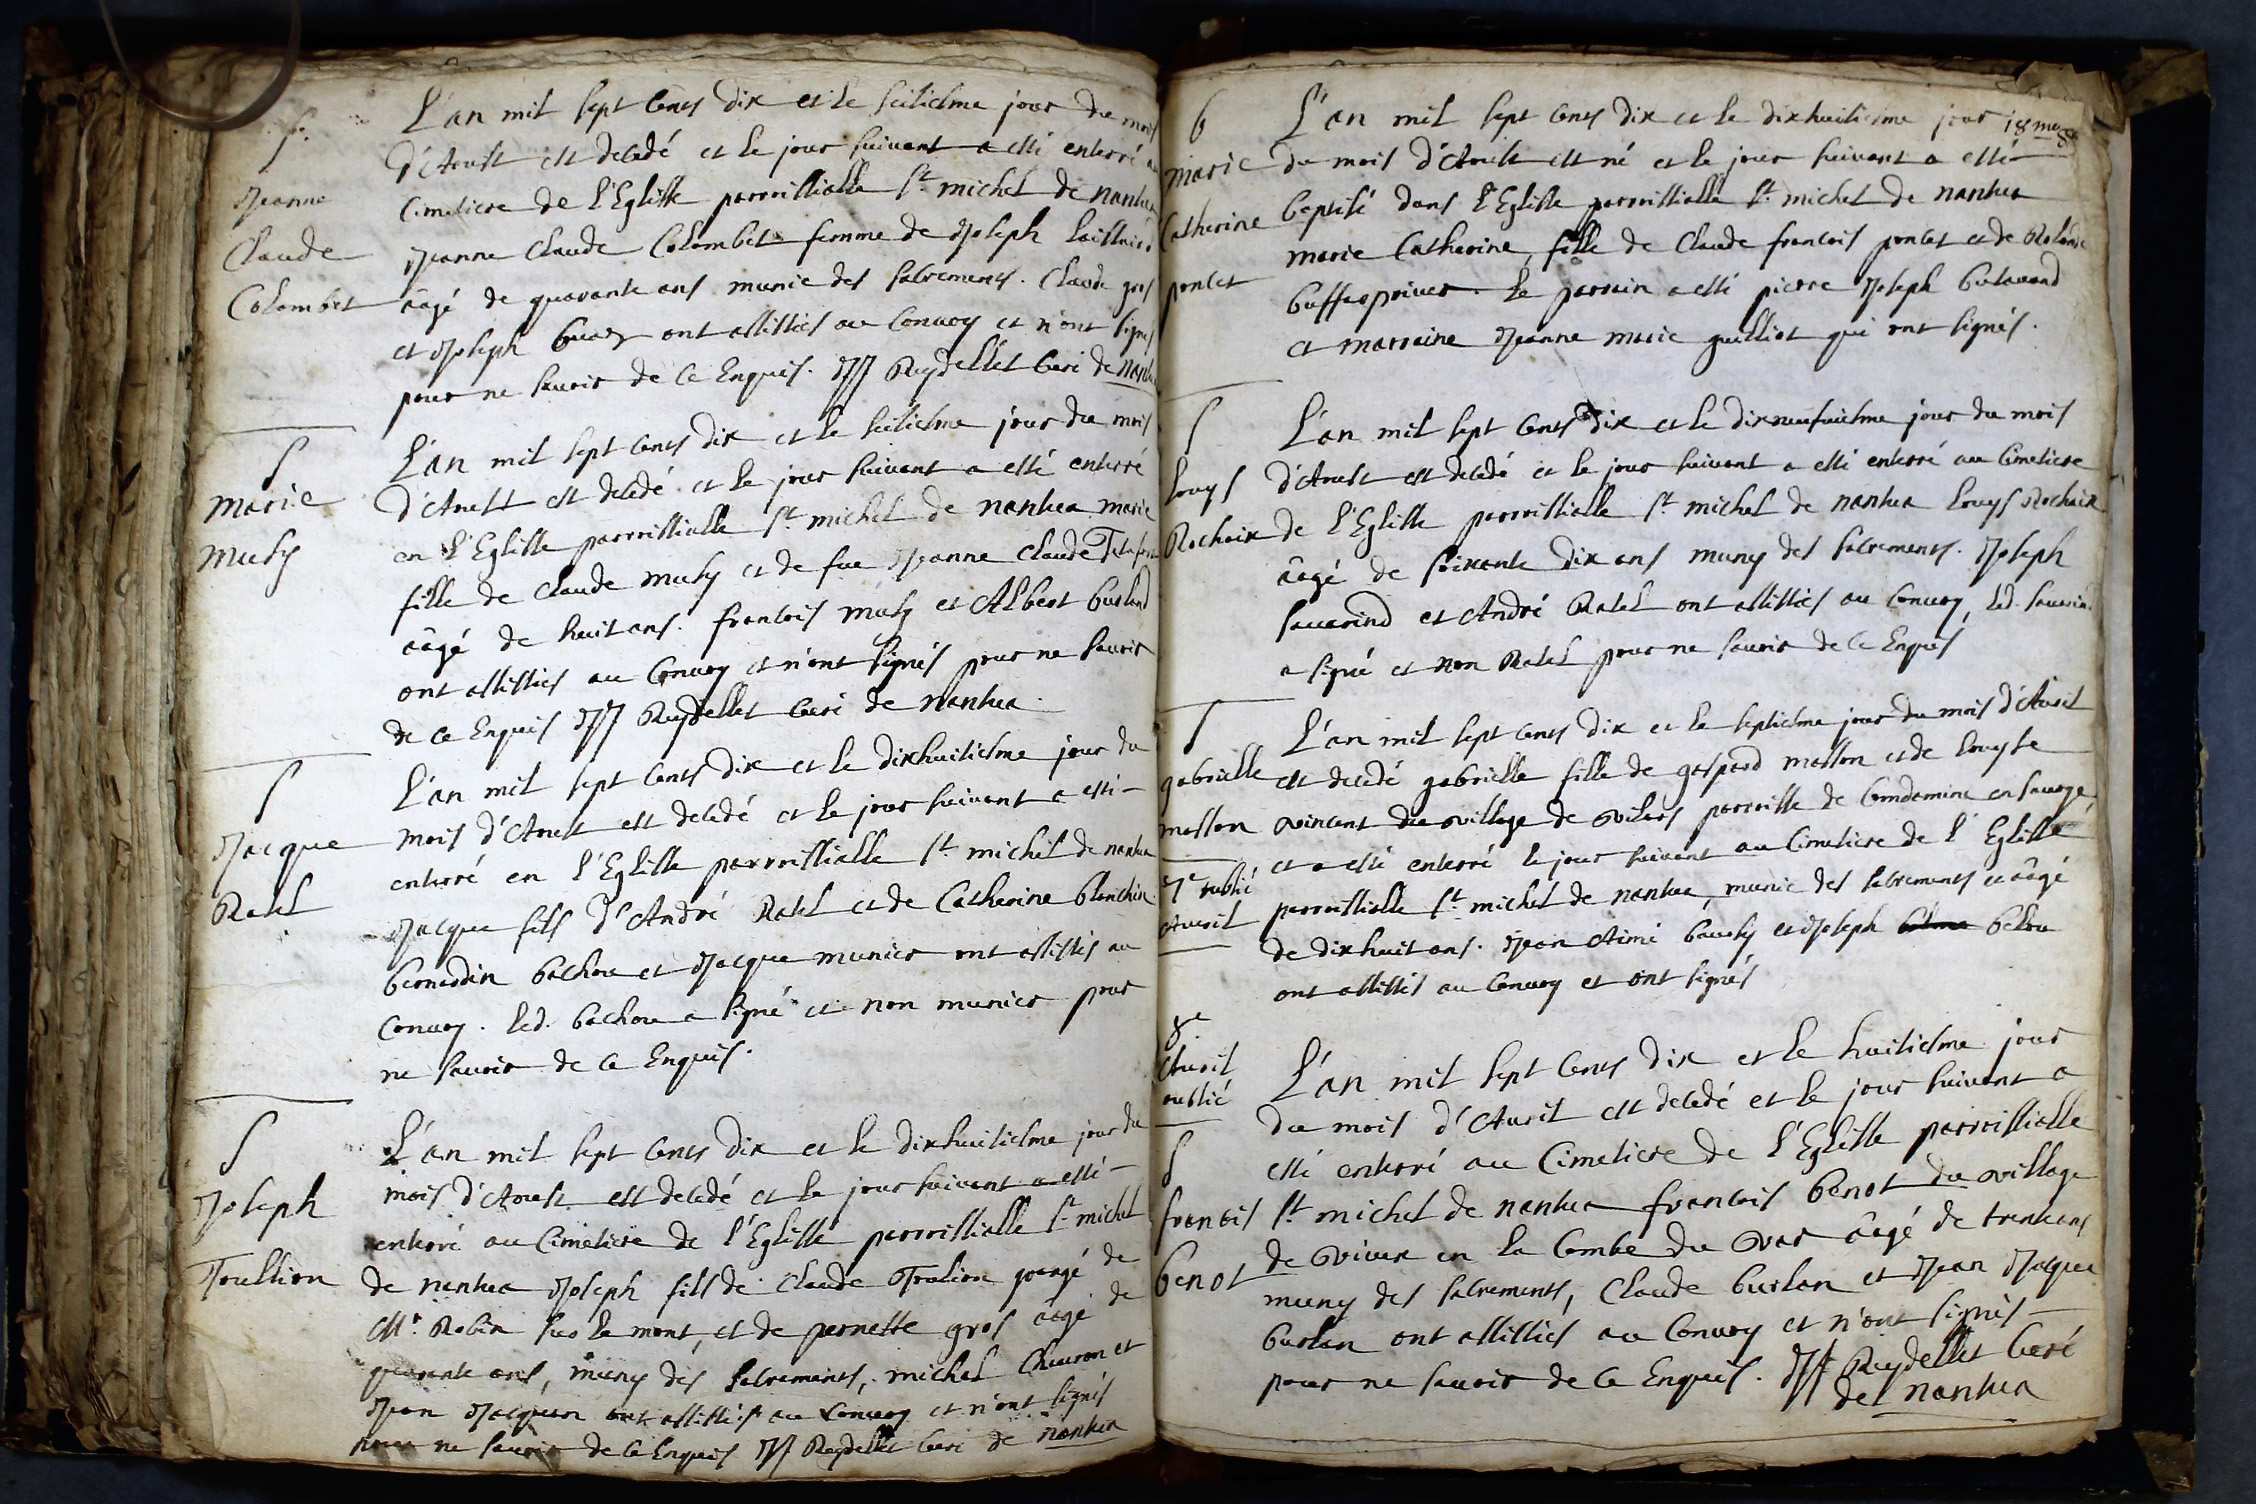 S.
Jeanne
Claude
Colombet
L'an mil sept cents dix et le seiziesme jour du mois
d'Aoust est decedé et le jour suivant a esté enterré au
cimetiere de l'Eglisse parroissialle St. michel de nantua
Jeanne Claude Colombet femme de Joseph
âagé de quarante ans munie des sacrements. Claude gros
et Joseph ont assistés au Convoy et n'ont signés
pour ne sçavoir de ce Enquis. JJ Reydellet Curé de nantua
S
marie
musy
L'an mil sept cents dix et le seiziesme jour du mois
d'Aoust est decedé et le jour suivant a esté enterré
en l'Eglisse parroissialle St. michel de nantua marie
fille de Claude musy et de fue Jeanne Claude
âagé de huit ans. francois musy et Albert burland
ont assistés au Convoy et n'ont signés pour ne sçavoir
de ce Enquis JJ Reydellet Curé de nantua.
S
Jacque
Ratel
L'an mil sept cents dix et le dixhuitiesme jour du
mois d'Aoust est decedé et le jour suivant a esté
enterré en l'Eglisse parroissialle St. michel de nantua
Jacque fils d'André Ratel et de Catherine blanchin
bernardin bachou et Jacque munier ont assistés au
Convoy. led. bachou a signé et non munier pour
ne sçavoir de ce Enquis.
S
Joseph
Joullion
L'an mil sept cents dix et le dixhuitiesme jour du
mois d'Aoust est decedé et le jour suivant a esté
enterré au Cimetiere de l'Eglisse parroissialle St. michel
de nantua Joseph fils de Claude grangé de
Mr. Robin sus le mont, et de pernette gros âagé de
quarante ans, muny des sacrements, michel Chevron et
Jean Jacquen ont assistés au Convoy et n'ont signés
pour ne sçavoir de ce Enquis JJ Reydellet Curé de nantua
b
marie
Catherine
poncet
L'an mil sept cents dix et le dixhuitiesme jour 18 me
du mois d'Aoust est né et le jour suivant a esté
baptisé dans l'Eglisse parroissialle St. michel de nantua
marie Catherine, fille de Claude francois poncet et de
. Le parrain a esté pierre Joseph
et marraine Jeanne marie guilliot qui ont signés.
S
Louys
Rochaix
L'an mil sept cents dix et le dixneufviesme jour du mois
d'Aoust est decedé et le jour suivant a esté enterré au Cimetiere
de l'Eglisse parroissialle St. michel de nantua Louys Rochaix
âagé de soixante dix ans muny des sacrements. Joseph
savarind et André Ratel ont assistés au Convoy, led. savarind
a signé et non Ratel pour ne sçavoir de ce Enquis
S
gabrielle
masson
7e oublié
Avril
L'an mil sept cents dix et le septiesme jour du mois d'Avril
est decedé gabrielle fille de gaspard masson et de Louyse
vincent du village de vilars parroisse de Condamine en savoye
et a esté enterré le jour suivant au Cimetiere de l'Eglisse
parroissialle St. michel de nantua, munie des sacrements et âagé
de dixhuit ans. Jean Aimé et Joseph
ont assistés au Convoy et ont signés
8e
Avril
oublié
S
francois
benot
L'an mil sept cents dix et le huitiesme jour
du mois d'Avril est decedé et le jour suivant a
esté enterré au Cimetiere de l'Eglisse parroissialle
St. michel de nantua francois benot du village
de vivier en la Combe du var âagé de trentans
muny des sacrements, Claude burlan et Jean Jacques
burlan ont assistés au Convoy et n'ont signés
pour ne sçavoir de ce Enquis. JJ Reydellet Curé
de nantua